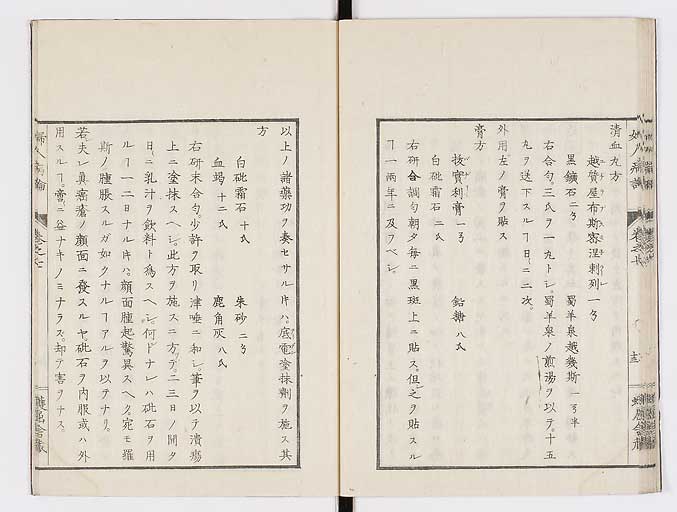 清血丸方
越賀屋布斯密涅剌列一匁
黒鑛石二匁 蜀羊泉越幾斯一匁半
右合匀。三氏ヲ一丸トシ。蜀羊泉ノ煎湯ヲ以テ。十五
丸ヲ送下スルヿ日ニ二次。
外用左ノ膏ヲ貼ス
膏方
牧實利膏一匁 鉛糖八氏
白砒霜石二氏
右研合調匀朝夕毎ニ黒斑上ニ貼ス。但之ヲ貼スル
ヿ一兩年ニ及フベシ
以上ノ諸藥功ヲ奏セサル𪜈ハ。底電塗抹劑ヲ施ス其
方
白砒霜石十氏 朱砂二匁
血竭十二氏 鹿角灰八氏
右研末合匀。少許ヲ取リ津唾ニ和シ。筆ヲ以テ潰瘍
上ニ塗抹スヘシ。此方ヲ施スニ方テ。二三日ノ間タ
日ニ乳汁ヲ飲料ト爲スヘシ。何トナレハ砒石ヲ用
ルヿ一二日ナル𪜈ハ。顔面腫起驚異スヘク。宛モ羅
斯ノ腫脹スルガ如クナルヿアルヲ以テナリ。
若夫レ眞癌瘡ノ顔面ニ發スルヤ。砒石ヲ内服或ハ外
用スルヿ。啻ニ益ナキノミナラス。却テ害ヲナス。
婦人病論
卷之七